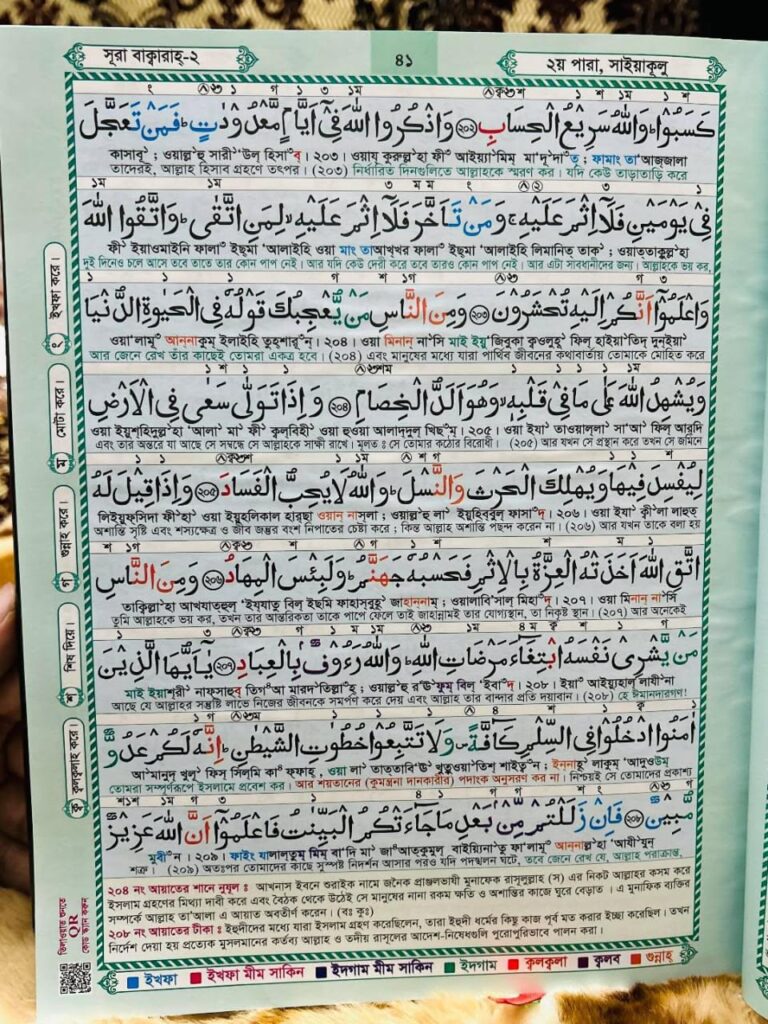 সূরা বাক্বারাহ্-২
৪১
২য় পারা, সাইয়াকূলু
كَسَبُوْا ؕ وَاللّٰهُ سَرِيْعُ الْحِسَابِ ﴿۲۰۲﴾ وَاذْكُرُوا اللّٰهَ فِىْۤ اَيَّامٍ مَّعْدُوْدٰتٍ ؕ فَمَنْ تَعَجَّلَ
কাসাবূ ; ওয়াল্লা-হু সারী-'উল্ হিসা-ব্ । ২০৩ । ওয়ায্ কুরুল্লা-হা ফী- আইয়্যা-মিম্ মা'দূ'দা-ত্ ; ফামাং তা'আজ্জালা
তাদেরই, আল্লাহ হিসাব গ্রহণে তৎপর। (২০৩) নির্ধারিত দিনগুলিতে আল্লাহকে স্মরণ কর। যদি কেউ তাড়াতাড়ি করে
فِىْ يَوْمَيْنِ فَلَاۤ اِثْمَ عَلَيْهِ ۚ وَمَنْ تَاَخَّرَ فَلَاۤ اِثْمَ عَلَيْهِ ۙ لِمَنِ اتَّقٰى ؕ وَاتَّقُوا اللّٰهَ
ফী ইয়াওমাইনি ফালা- ইছ্মা 'আলাইহি ওয়া মাং তাআখ্খর ফালা- ইছ্মা 'আলাইহি লিমানিত্ তাক ; ওয়াত্তাকুল্লা-হা
দুই দিনেও চলে আসে তবে তাতে তার কোন পাপ নেই। আর যদি কেউ দেরী করে তবে তারও কোন পাপ নেই। আর এটা সাবধানীদের জন্য। আল্লাহকে ভয় কর,
وَاعْلَمُوْۤا اَنَّكُمْ اِلَيْهِ تُحْشَرُوْنَ ﴿۲۰۳﴾ وَمِنَ النَّاسِ مَنْ يُّعْجِبُكَ قَوْلُهٗ فِى الْحَيٰوةِ الدُّنْيَا
ওয়া'লামূ- আন্নাকুম্ ইলাইহি তুহ্শারূ-ন্ । ২০৪ । ওয়া মিনান্ না-সি মাই ইয়ু'জিবুকা ক্বাওলুহূ ফিল্ হাইয়া-তিদ্ দুন্ইয়া
আর জেনে রেখ তাঁর কাছেই তোমরা একত্র হবে। (২০৪) এবং মানুষের মধ্যে যারা পার্থিব জীবনের কথাবার্তায় তোমাকে মোহিত করে
وَيُشْهِدُ اللّٰهَ عَلٰى مَا فِىْ قَلْبِهٖ ۙ وَهُوَ اَلَدُّ الْخِصَامِ ﴿۲۰۴﴾ وَاِذَا تَوَلّٰى سَعٰى فِى الْاَرْضِ
ওয়া ইয়ুশ্হিদুল্লা-হা 'আলা- মা- ফী ক্বল্বিহী- ওয়া হুওয়া আলাদ্দুল খিছ্বা-ম্ । ২০৫ । ওয়া ইযা- তাওয়াল্লা- সা'আ- ফিল্ আরদ্বি
এবং তার অন্তরে যা আছে সে সম্বন্ধে সে আল্লাহকে সাক্ষী রাখে। মূলত ঃ সে তোমার কঠোর বিরোধী। (২০৫) আর যখন সে প্রস্থান করে তখন সে জমিনে
لِيُفْسِدَ فِيْهَا وَيُهْلِكَ الْحَرْثَ وَالنَّسْلَ ؕ وَاللّٰهُ لَا يُحِبُّ الْفَسَادَ ﴿۲۰۵﴾ وَاِذَا قِيْلَ لَهُ
লিইয়ুফ্সিদা ফী-হা- ওয়া ইয়ুহ্লিকাল হার্ছা ওয়ান্ নাস্লা ; ওয়াল্লা-হু লা- ইয়ুহিব্বুল্ ফাসা-দ্ । ২০৬ । ওয়া ইযা- ক্বী-লা লাহুত্
অশান্তি সৃষ্টি এবং শস্যক্ষেত্র ও জীব জন্তুর বংশ নিপাতের চেষ্টা করে ; কিন্তু আল্লাহ অশান্তি পছন্দ করেন না। (২০৬) আর যখন তাকে বলা হয়
اتَّقِ اللّٰهَ اَخَذَتْهُ الْعِزَّةُ بِالْاِثْمِ فَحَسْبُهٗ جَهَنَّمُ ؕ وَلَبِئْسَ الْمِهَادُ ﴿۲۰۶﴾ وَمِنَ النَّاسِ
তাকিল্লা-হা আখযাত্হুল্ 'ইয্যাতু বিল্ ইছ্মি ফাহাস্বুহূ জাহান্নাম্ ; ওয়ালাবি'সাল্ মিহা-দ্ । ২০৭ । ওয়া মিনান্ না-সি
তুমি আল্লাহকে ভয় কর, তখন তার আন্তরিকতা তাকে পাপে ফেলে তাই জাহান্নামই তার যোগ্যস্থান, তা নিকৃষ্ট স্থান। (২০৭) আর অনেকেই
مَنْ يَّشْرِىْ نَفْسَهُ ابْتِغَآءَ مَرْضَاتِ اللّٰهِ ؕ وَاللّٰهُ رَءُوْفٌۢ بِالْعِبَادِ ﴿۲۰۷﴾ يٰۤاَيُّهَا الَّذِيْنَ
মাই ইয়াশ্রী নাফ্সাহুব্ তিগা-আ মারদ্বাতিল্লা-হ্ ; ওয়াল্লা-হু র'ঊ-ফুম্ বিল্ 'ইবা-দ্ । ২০৮ । ইয়া- আইয়্যুহাল্ লাযী-না
আছে যে আল্লাহর সন্তুষ্টি লাভে নিজের জীবনকে সমর্পণ করে দেয় এবং আল্লাহ তার বান্দার প্রতি দয়াবান। (২০৮) হে ঈমানদারগণ!
اٰمَنُوا ادْخُلُوْا فِى السِّلْمِ كَآفَّةً ۪ وَلَا تَتَّبِعُوْا خُطُوٰتِ الشَّيْطٰنِ ؕ اِنَّهٗ لَكُمْ عَدُوٌّ
আ-মানুদ্ খুলূ ফিস্ সিল্মি কা-ফ্ফাহ্ , ওয়া লা- তাত্তাবি'ঊ খুতুওয়া-তিশ্ শাইত্বা-ন্ ; ইন্নাহূ লাকুম্ 'আদুওউম্
তোমরা সম্পূর্ণরূপে ইসলামে প্রবেশ কর। আর শয়তানের (কুমন্ত্রনা দানকারীর) পদাংক অনুসরণ কর না। নিশ্চয়ই সে তোমাদের প্রকাশ্য
مُّبِيْنٌ ﴿۲۰۸﴾ فَاِنْ زَلَلْتُمْ مِّنْۢ بَعْدِ مَا جَآءَتْكُمُ الْبَيِّنٰتُ فَاعْلَمُوْۤا اَنَّ اللّٰهَ عَزِيْزٌ
মুবী-ন । ২০৯ । ফাইং যালাল্তুম্ মিম্ বা'দি মা- জা-আত্কুমুল্ বাইয়্যিনা-তু ফা'লামূ- আন্নাল্লা-হা 'আযী-যুন্
শত্রু। (২০৯) অতঃপর তোমাদের কাছে সুস্পষ্ট নিদর্শন আসার পরও যদি পদস্খলন ঘটে, তবে জেনে রেখ যে, আল্লাহ পরাক্রান্ত,
২০৪ নং আয়াতের শানে নুযূল ঃ আখনাস ইবনে শুরাইক নামে জনৈক প্রাঞ্জলভাষী মুনাফেক রাসূলুল্লাহ (স) এর নিকট আল্লাহর কসম করে
ইসলাম গ্রহণের মিথ্যা দাবী করে এবং বৈঠক থেকে উঠেই সে মানুষের নানা রকম ক্ষতি ও অশান্তির কাজে ঘুরে বেড়াত । এ মুনাফিক ব্যক্তির
সম্পর্কে আল্লাহ তা'আলা এ আয়াত অবতীর্ণ করেন। (বঃ কুঃ)
২০৮ নং আয়াতের টীকা ঃ ইহুদীদের মধ্যে যারা ইসলাম গ্রহণ করেছিলেন, তারা ইহুদী ধর্মের কিছু কাজ পূর্ব মত করার ইচ্ছা করেছিল। তখন
নির্দেশ দেয়া হয় প্রত্যেক মুসলমানের কর্তব্য আল্লাহ ও তদীয় রাসূলের আদেশ-নিষেধগুলি পুরোপুরিভাবে পালন করা।
ইখফা ইখফা মীম সাকিন ইদগাম মীম সাকিন ইদগাম ক্বলক্বলা ক্বলব গুন্নাহ্
ং ইখফা করে।
ম মোটা করে।
গ গুন্নাহ করে।
শ শিষ দিয়ে।
ক্ব কলকলাহ করে।
তিলাওয়াত শুনতে
QR
কোড স্ক্যান করুন